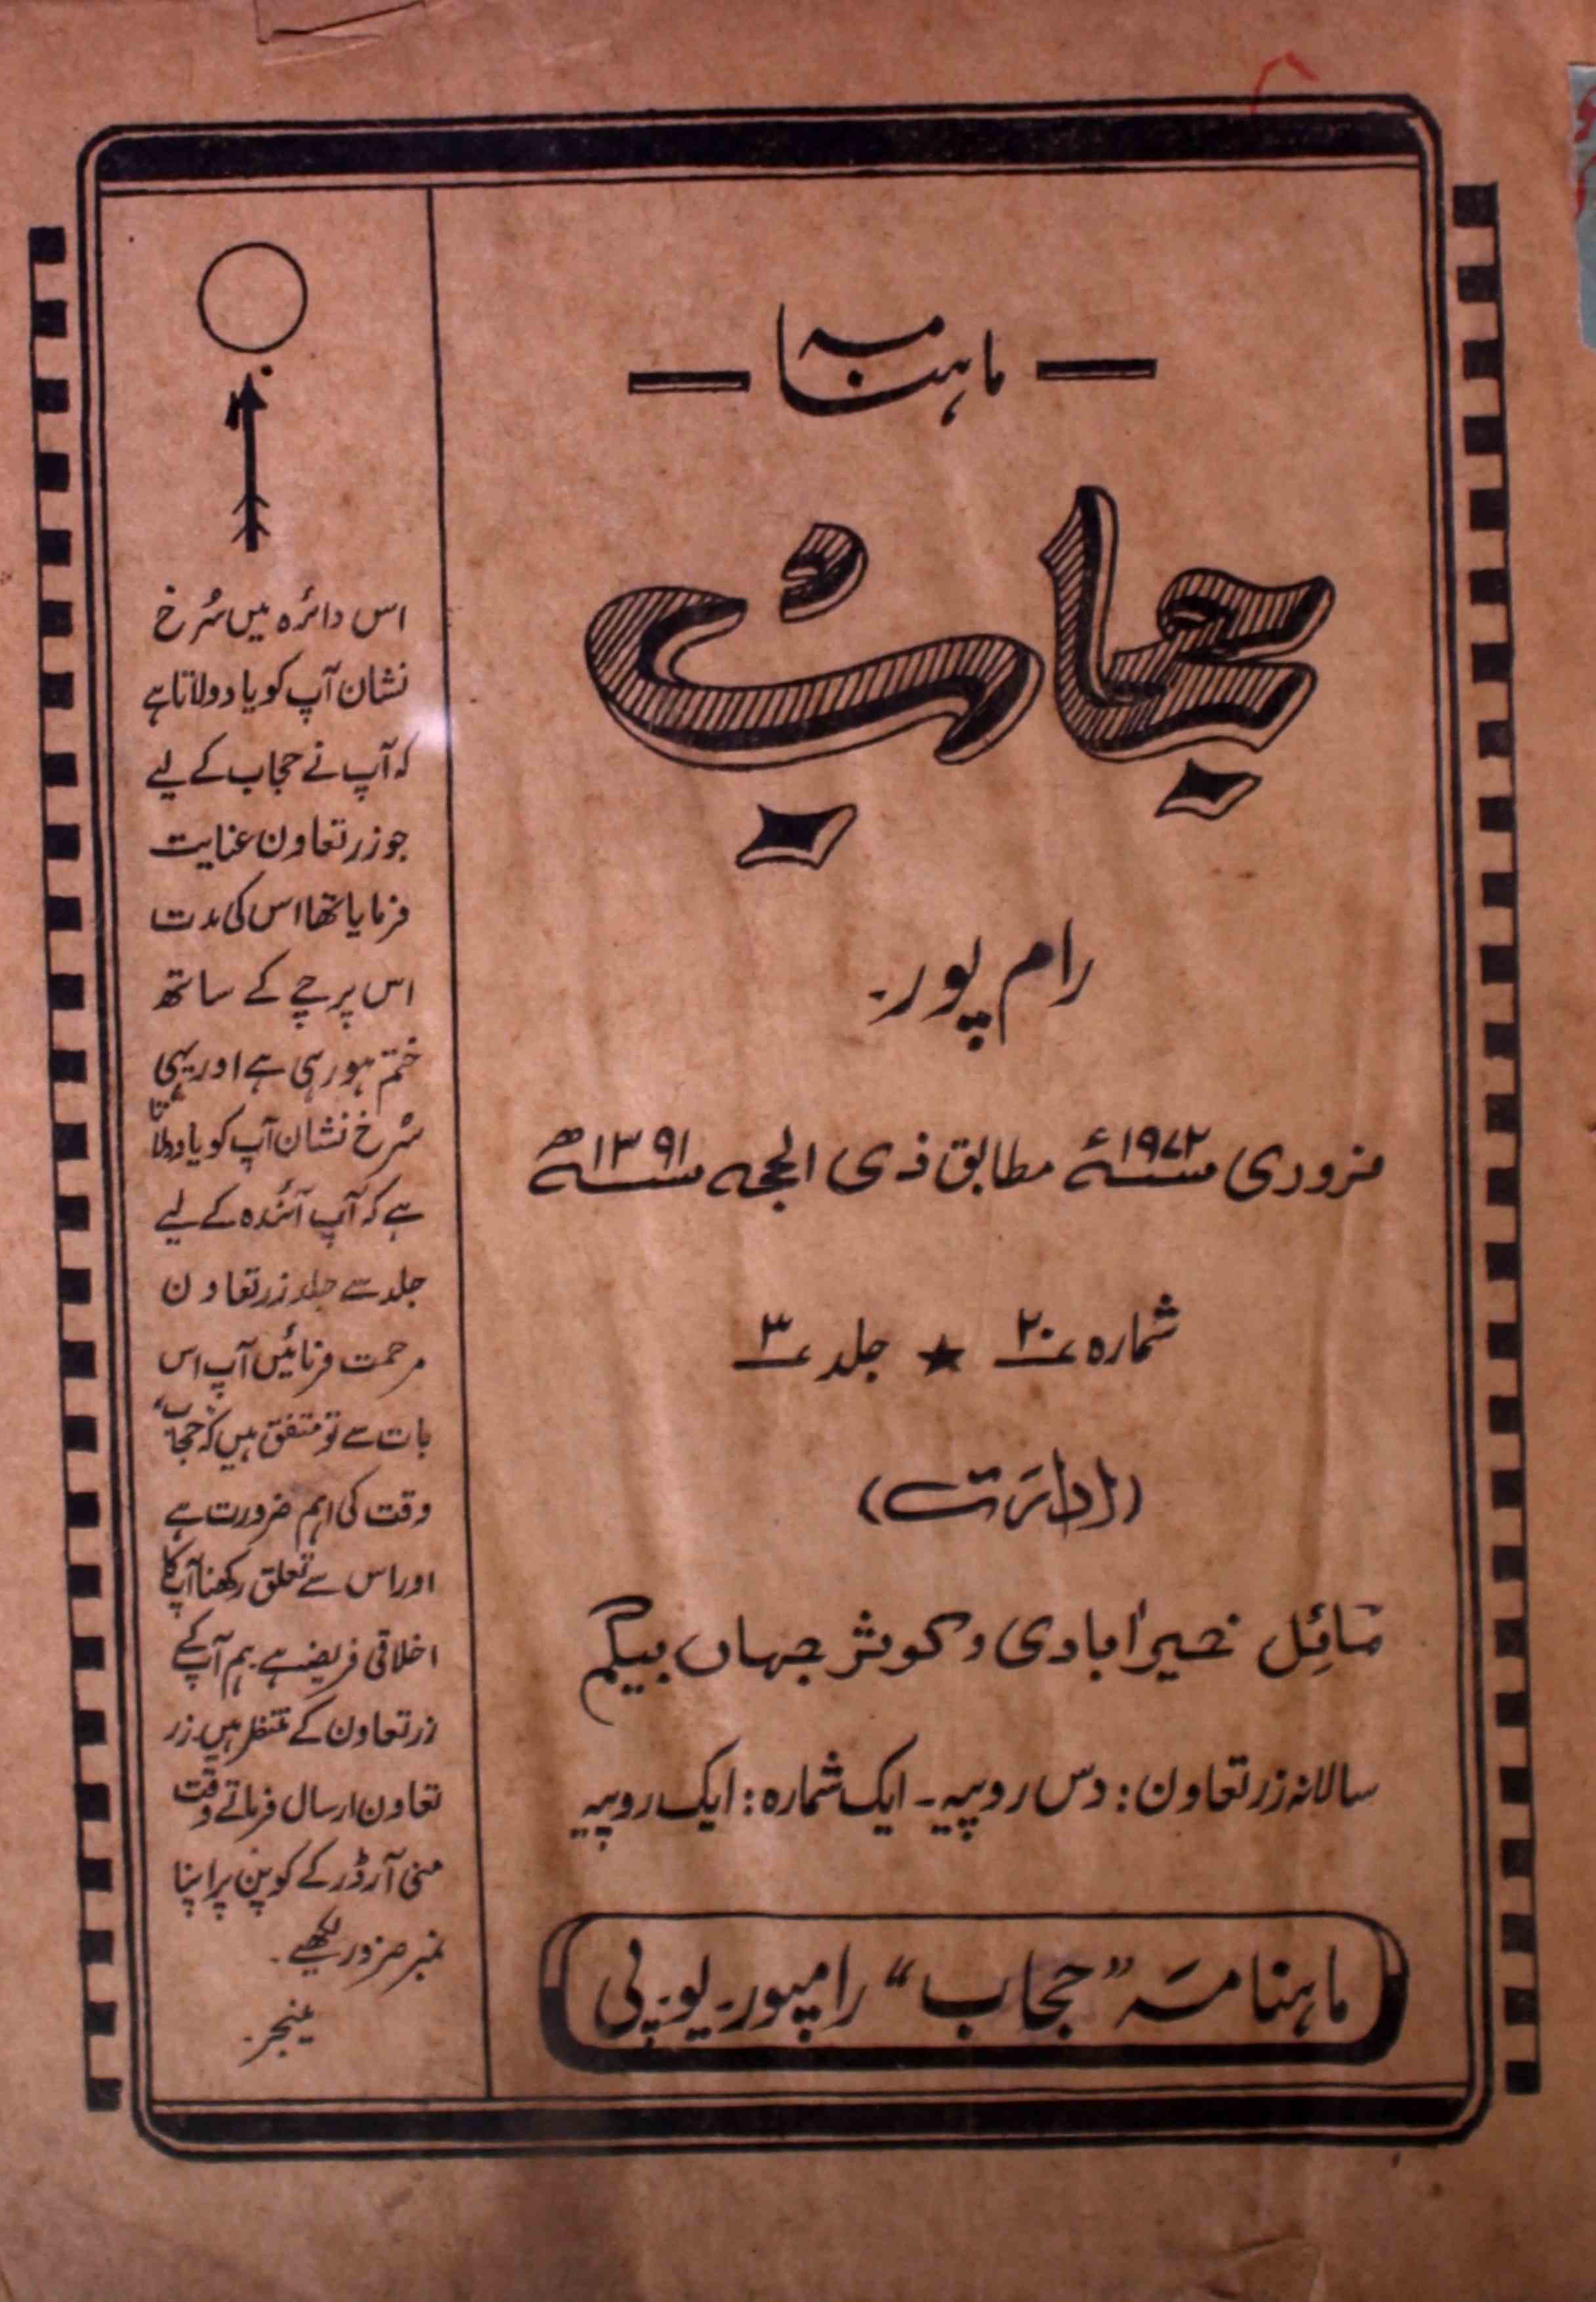 ماہنامہ
حجاب
رام پور۔
فروری سنہ ۱۹۷۲ء مطابق ذی الحجہ سنہ ۱۳۹۱ھ
شمارہ ۲۰ ★ جلد ۳
(ادارت)
مائل خیرآبادی و کوثر جہاں بیگم
سالانہ زر تعاون: دس روپیہ۔ ایک شمارہ: ایک روپیہ
ماہنامہ "حجاب" رامپور۔ یو۔ پی
اس دائرہ میں سُرخ
نشان آپ کو یاد دلاتا ہے
کہ آپ نے حجاب کے لیے
جو زر تعاون عنایت
فرمایا تھا اس کی مدت
اس پرچے کے ساتھ
ختم ہو رہی ہے اور یہی
سُرخ نشان آپ کو یاد دلاتا
ہے کہ آپ آئندہ کے لیے
جلد سے جلد زر تعاون
مرحمت فرمائیں آپ اس
بات سے تو متفق ہیں کہ "حجاب"
وقت کی اہم ضرورت ہے
اور اس سے تعلق رکھنا آپ کا
اخلاقی فریضہ ہے۔ ہم آپ کے
زر تعاون کے منتظر ہیں۔ زر
تعاون ارسال فرماتے وقت
منی آرڈر کے کوپن پر اپنا
نمبر ضرور لکھیے۔
مینجر۔